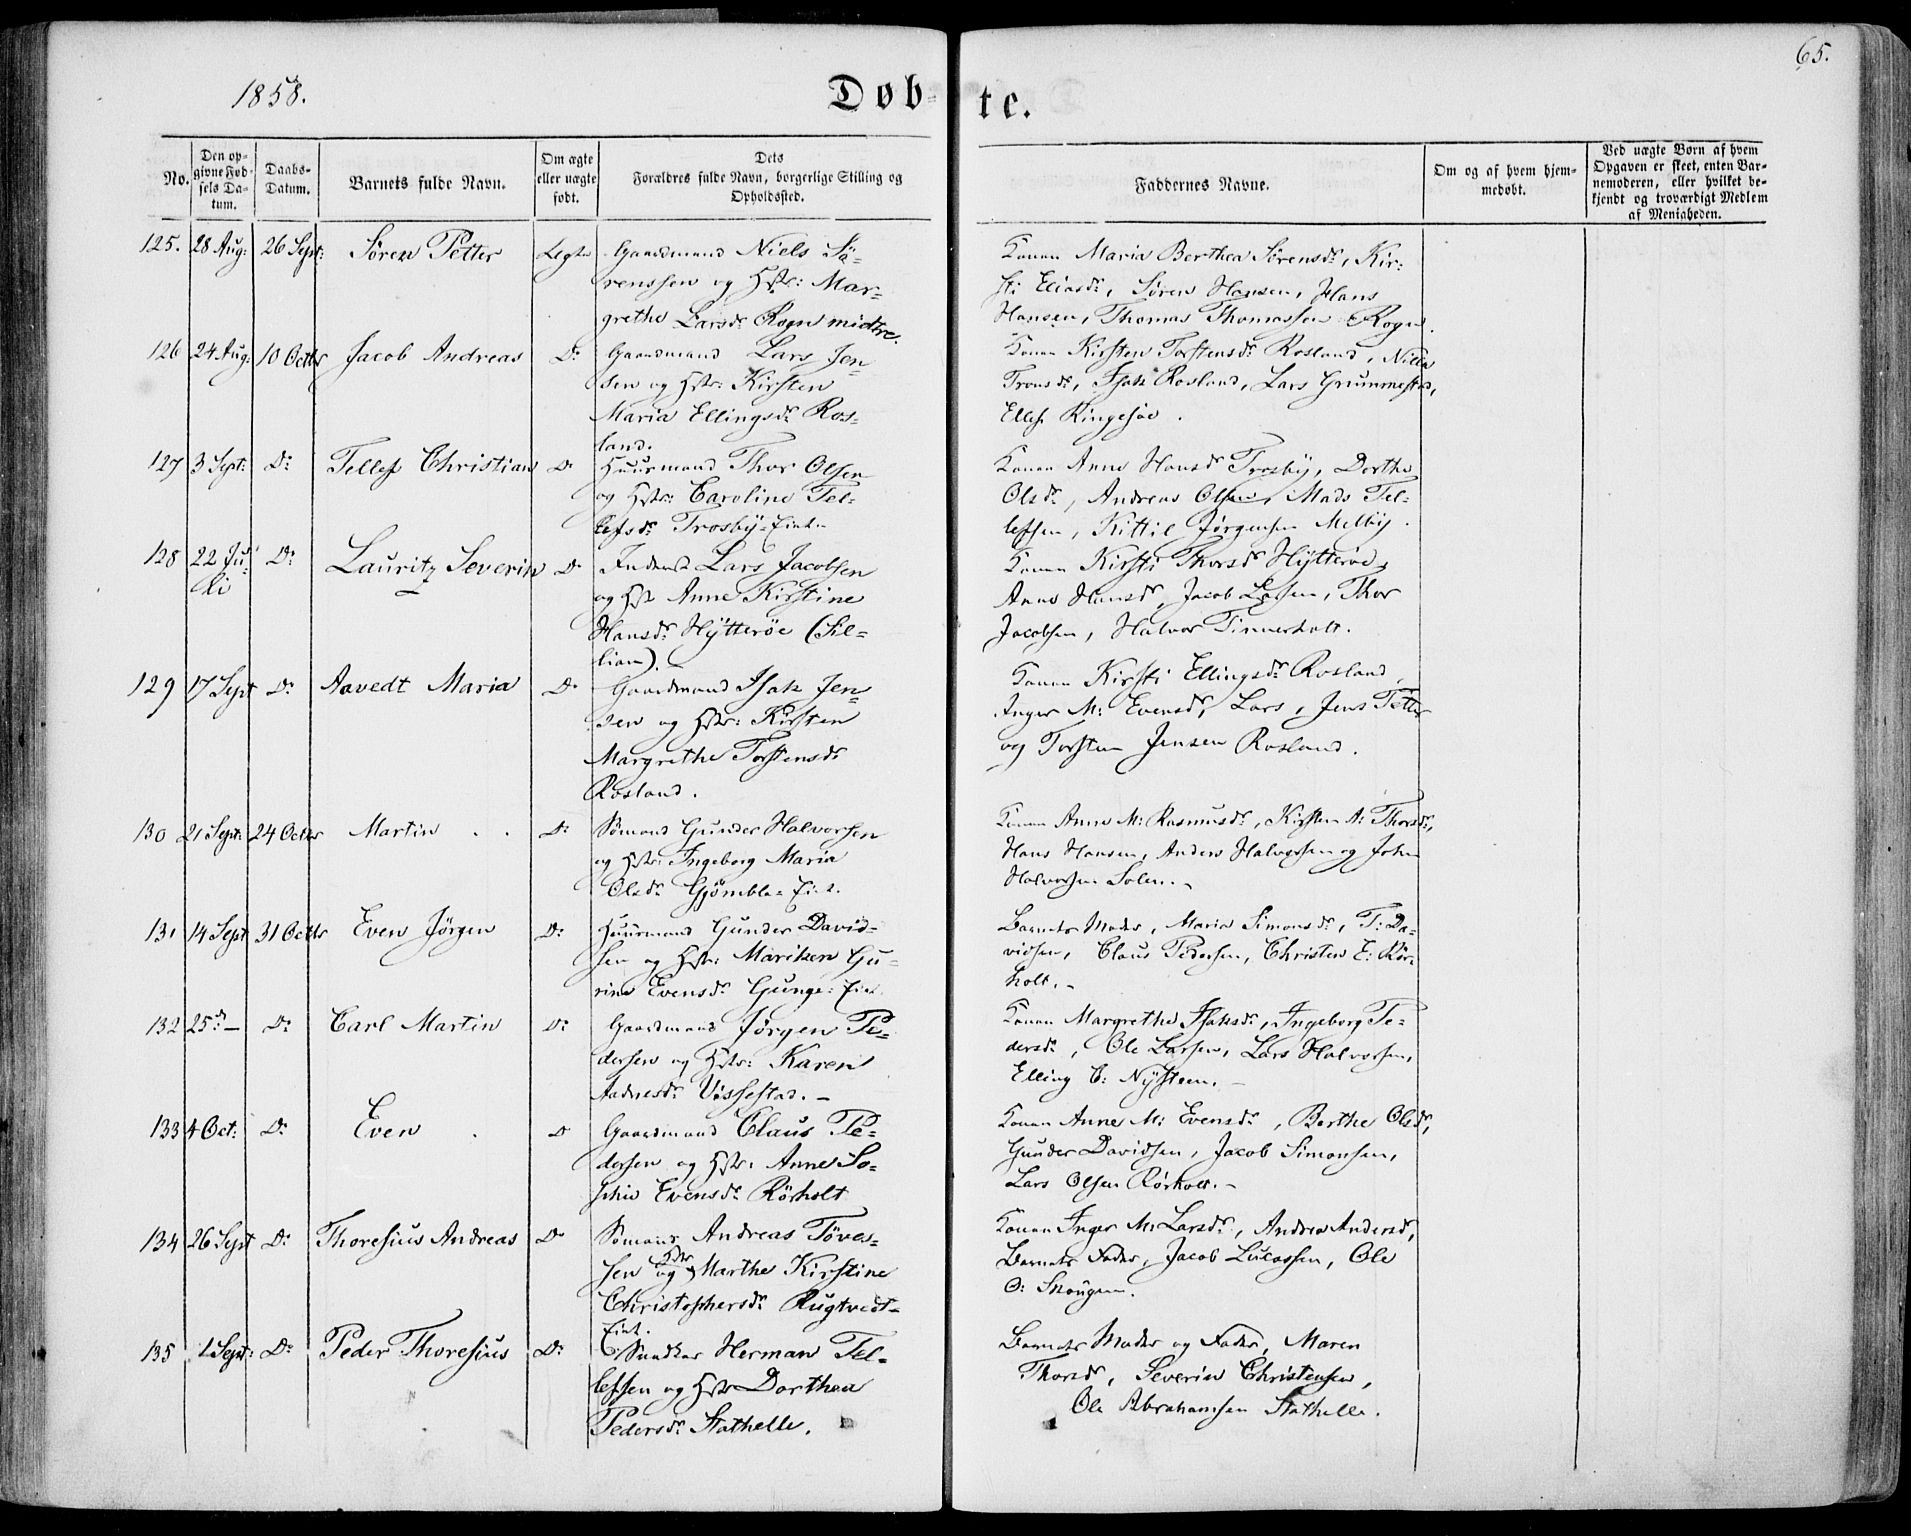 65.
1858.
Døb-te.
No.
Den op-
givne Fød-
sels Da-
tum.
Daabs-
Datum.
Barnets fulde Navn.
Om ægte
eller uægte
født.
Dets
Forældres fulde Navn, borgerlige Stilling og
Opholdssted.
Faddernes Navne.
Om og af hvem hjem-
medøbt.
Ved uægte Børn af hvem
Opgaven er skeet, enten Bar-
nemoderen, eller hvilket be-
kjendt og troværdigt Medlem
af Menigheden.
125. 28 Aug: 26 Sept: Søren Petter Ægte Gaardmand Niels Sö-
renssen og Hstr: Mar-
grethe Larsdr Rogn midtre.
Konen Maria Berthea Sørensdr, Kir-
sti Eliasdr, Søren Hansen, Hans
Hansen, Thomas Thomassen Rogn.
126 24 Aug: 10 Octbr Jacob Andreas Do Gaardmand Lars Jen-
sen og Hstr: Kirsten
Maria Ellingsdr Ros-
land.
Konen Kirsten Torstensdr Rosland, Nilla
Tronsdr, Isak Rosland, Lars Grummestad,
Ellef Ringesöe.
127 3 Sept: Do Tellef Christian Do Huusmand Thor Olsen
og Hstr: Caroline Tel-
lefsdr Trosby-Eiet.
Konen Anne Hansdr Trosby, Dorthe
Olsdr, Andreas Olsen, Mads Tel-
lefsen, Kittil Jørgensen Melby.
128 22 Ju-
li Do Lauritz Severin Do Inderst Lars Jacobsen
og Hst Anne Kirstine
Hansdr Hytterøe (Sil-
lian).
Konen Kirsti Thorsdr Hytterøe,
Anne Hansdr, Jacob Larsen, Thor
Jacobsen, Halvor Tinnerholt.
129 17 Sept Do Aavedt Maria Do Gaardmand Isak Jen-
sen og Hstr: Kirsten
Margrethe Torstensdr
Rosland.
Konen Kirsti Ellingsdr Rosland,
Inger M: Evensdr, Lars, Jens Petter
og Torsten Jensen Rosland.
130 21 Sept: 24 Octbr Martin Do Sømand Gunder Halvorsen
og Hstr: Ingeborg Maria
Olsdr Gjömble-Eiet.
Konen Anne M: Rasmusdr, Kirsten A: Thorsdr,
Hans Hansen, Anders Halvorsen og John
Halvorsen
131 14 Sept 31 Octbr Even Jørgen Do Huusmand Gunder David-
sen og Hstr: Mariken Gu-
rine Evensdr Gunge-Eiet.
Barnets Moder, Maria Simonsdr, T: Da-
vidsen, Claus Pedersen, Christen E: Rör-
holt.
132 25 d – Do Carl Martin Do Gaardmand Jørgen Pe-
dersen og Hstr: Karen
Aadnesdr Vissestad.
Konen Margrethe Isaksdr, Ingeborg Pe-
dersdr, Ole Larsen, Lars Halvorsen,
Elling C: Nysteen.
133 4 Oct: Do Even Do Gaardmand Claus Pe-
dersen og Hstr: Anne So-
phie Evensdr Rörholt
Konen Anne M: Evensdr, Berthe Olsdr,
Gunder Davidsen, Jacob Simonsen,
Lars Olsen Rörholt.
134 26 Sept Do Thoresius Andreas Do Sømand Andreas Töves-
sen og Hstr Marthe Kirstine
Christophersdr Rugtvedt-
Eiet.
Konen Inger M: Larsdr, Andrea Andersdr,
Barnets Fader, Jacob Lucassen, Ole
O: Skougen.
135 1 Sept: Do Peder Thoresius Do Snedker Herman Tel-
lefsen og Hstr Dorthea
Pedersdr Stathelle.
Barnets Moder og Fader, Maren
Thorsdr, Severin Christensen,
Ole Abrahamsen Stathelle.